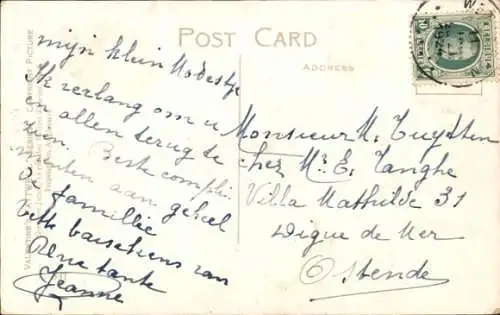 POST CARD
ADDRESS
mijn klein Modestje
Ik verlang om u
en allen terug te
zien. Beste compli
menten aan geheel
de famillie
Vele baisekens van
Uwe tante
Jeanne
Monsieur M. Tuytten
chez Mr. E. Tanghe
Villa Mathilde 31
Digue de Mer
Ostende